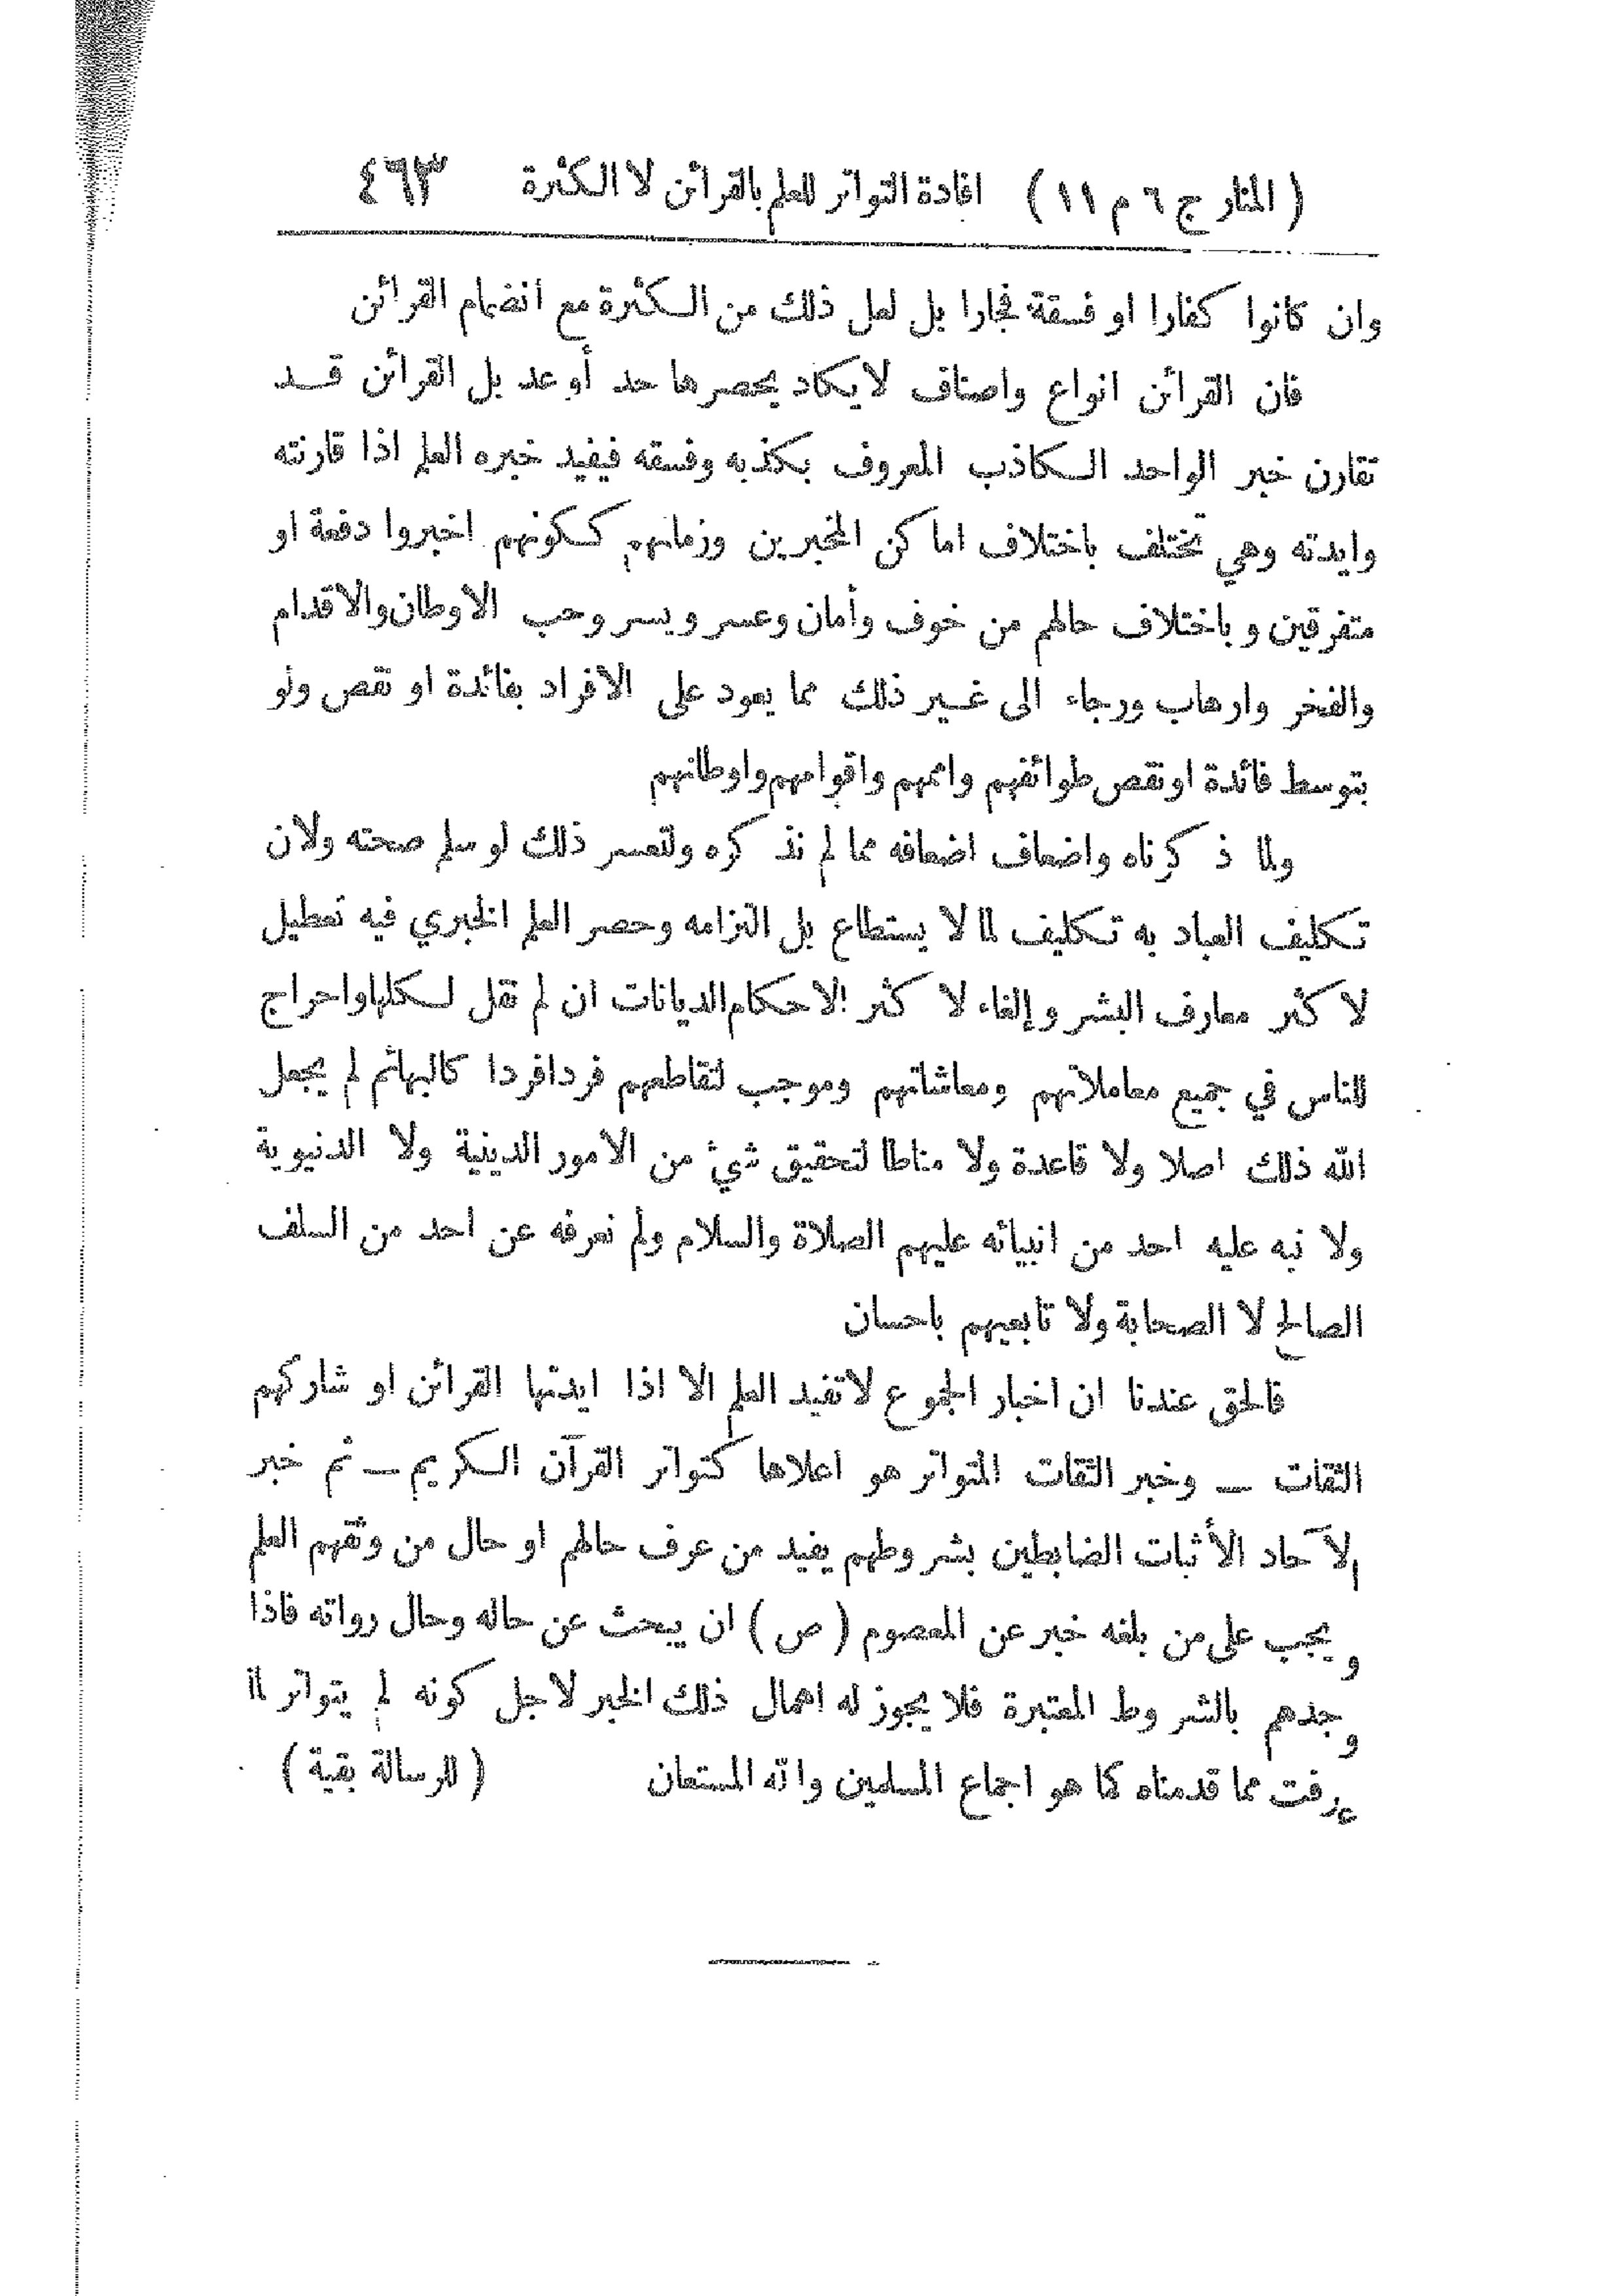 ( المنار ج ٦ م ١١ ) افادة التواتر للعلم بالقرائن لا الكثرة ٤٦٣
وان كانوا كفارا او فسقة فجارا بل لعل ذلك من الكثرة مع انضمام القرائن
فان القرائن انواع واصناف لا يكاد يحصرها حد أو عد بل القرائن قد
تقارن خبر الواحد الكاذب المعروف بكذبه وفسقه فيفيد خبره العلم اذا قارنته
وايدته وهي تختلف باختلاف اماكن المخبرين وزمانهم ككونهم اخبروا دفعة او
متفرقين وباختلاف حالهم من خوف وأمان وعسر ويسر وحب الاوطان والاقدام
والفخر وارهاب ورجاء الى غير ذلك مما يعود على الافراد بفائدة او نقص ولو
بتوسط فائدة او نقص طوائفهم واممهم واقوامهم واوطانهم
ولما ذكرناه واضعاف اضعافه مما لم نذكره ولتعسر ذلك لو سلم صحته ولان
تكليف العباد به تكليف لما لا يستطاع بل التزامه وحصر العلم الخبري فيه تعطيل
لا كثر معارف البشر وإلغاء لا كثر الاحكام الديانات ان لم نقل لكلها واحراج
للناس في جميع معاملاتهم ومعاشاتهم وموجب لتقاطعهم فردا فردا كالبهائم لم يجعل
الله ذلك اصلا ولا قاعدة ولا مناطا لتحقيق شيئ من الامور الدينية ولا الدنيوية
ولا نبه عليه احد من انبيائه عليهم الصلاة والسلام ولم نعرفه عن احد من السلف
الصالح لا الصحابة ولا تابعيهم باحسان
فالحق عندنا ان اخبار الجموع لا تفيد العلم الا اذا ايدتها القرائن او شاركهم
الثقات — وخبر الثقات المتواتر هو اعلاها كتواتر القرآن الكريم — ثم خبر
الآحاد الأثبات الضابطين بشروطهم يفيد من عرف حالهم او حال من وثقهم العلم
ويجب على من بلغه خبر عن المعصوم ( ص ) ان يبحث عن حاله وحال رواته فاذا
وجدهم بالشروط المعتبرة فلا يجوز له اهمال ذلك الخبر لاجل كونه لم يتواتر لما
عرفت مما قدمناه كما هو اجماع المسلمين والله المستعان ( للرسالة بقية )